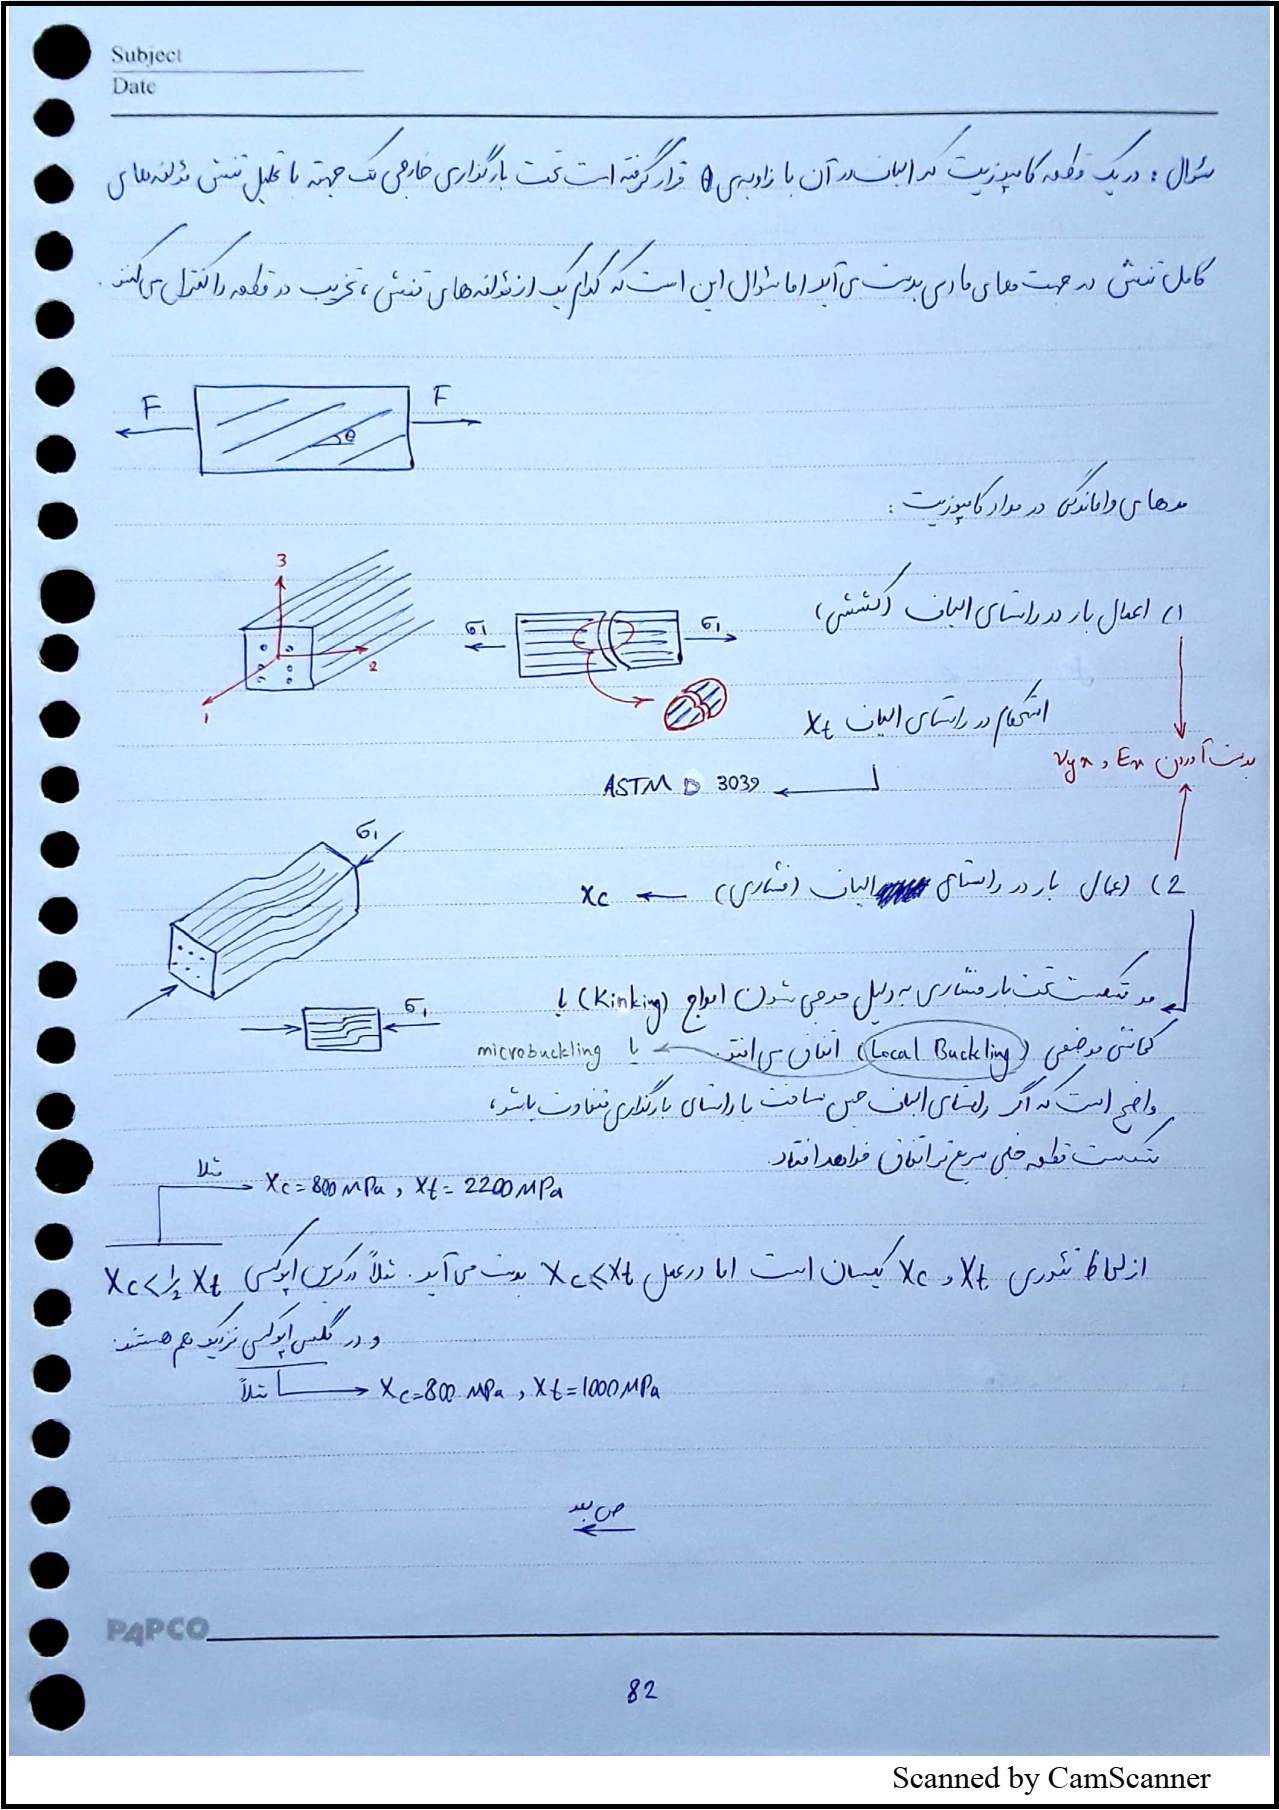 Subject
Date
سؤال : در یک قطعه کامپوزیت که الیاف در آن با زاویه‌ی θ قرار گرفته است تحت بارگذاری خارجی تک جهته با تحلیل تنش مؤلفه‌های
کامل تنش در جهت‌های مادی بدست می‌آید اما سؤال این است که کدام یک از مؤلفه‌های تنش ، تخریب در قطعه را کنترل می‌کند .
F
F
θ
مدهای واماندگی در مواد کامپوزیت :
1) اعمال بار در راستای الیاف (کششی)
3
2
1
σ1
σ1
استحکام در راستای الیاف Xt
بدست آوردن Ex و νyx
ASTM D 3039
2) اعمال بار در راستای الیاف (فشاری) ← Xc
σ1
σ1
مد شکست تحت بار فشاری به دلیل موجی شدن امواج (Kinking) یا
کمانش موضعی (Local Buckling) اتفاق می‌افتد. یا microbuckling
واضح است که اگر راستای الیاف حین ساخت با راستای بارگذاری متفاوت باشد،
شکست قطعه خیلی سریع‌تر اتفاق خواهد افتاد.
مثلا → Xc=800 MPa , Xt= 2200 MPa
از لحاظ تئوری Xt و Xc یکسان است اما در عمل Xc⩽Xt بدست می‌آید . مثلاً در کربن اپوکسی Xc<½Xt
و در گلاس اپوکسی نزدیک هم هستند.
مثلاً → Xc=800 MPa , Xt=1000 MPa
ص بعد
PAPCO
82
Scanned by CamScanner